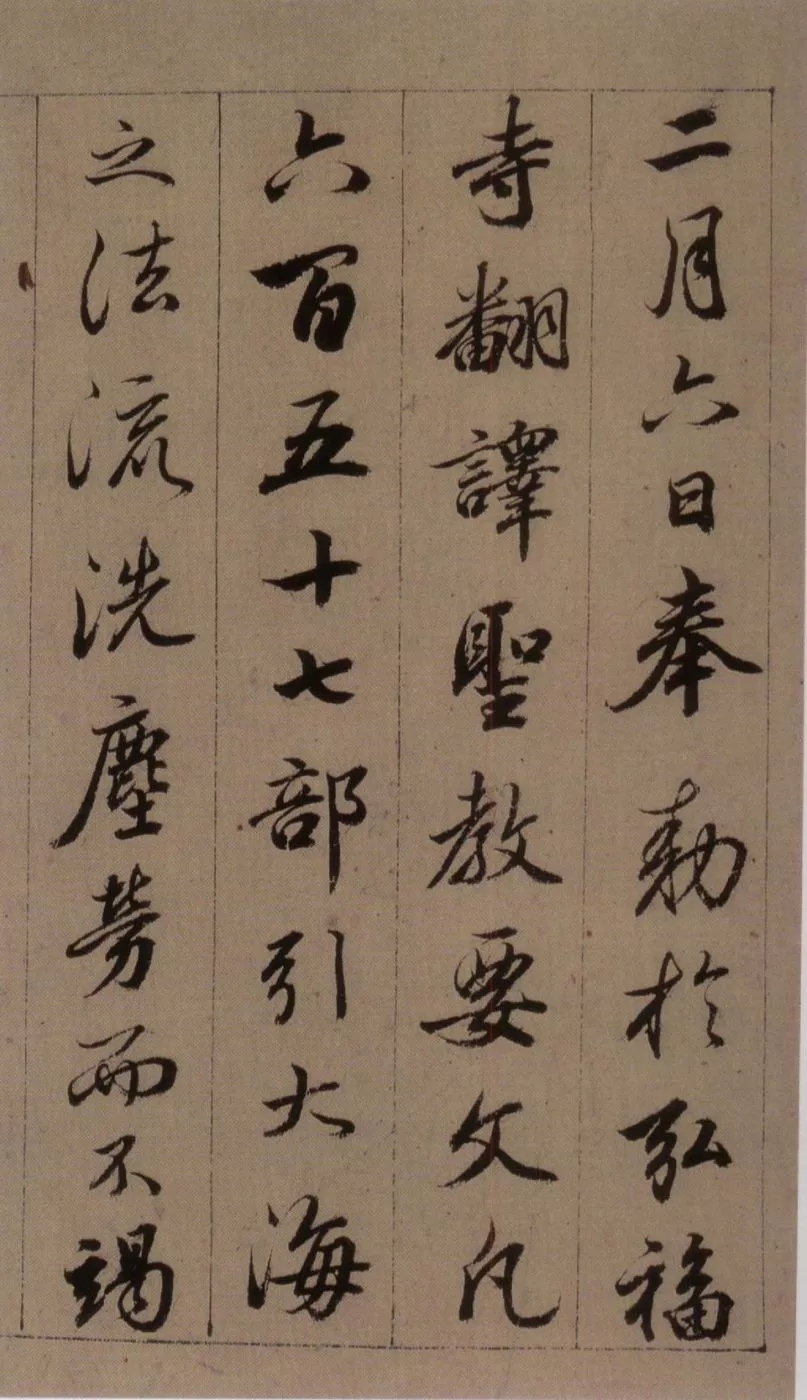 二月六日奉敕於弘福
寺翻譯聖教要文凡
六百五十七部引大海
之法流洗塵勞而不
竭